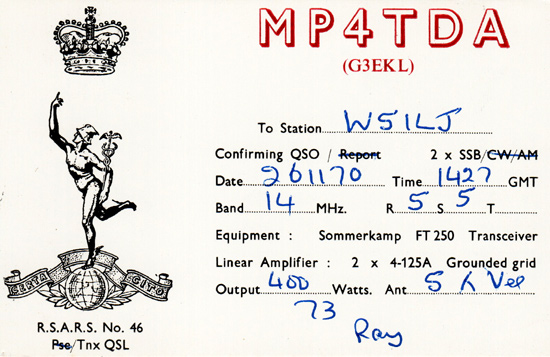 MP4TDA
(G3EKL)
To Station W5ILJ
Confirming QSO / Report 2 x SSB/CW/AM
Date 261170 Time 1427 GMT
Band 14 MHz. R 5 S 5 T
Equipment : Sommerkamp FT 250 Transceiver
Linear Amplifier : 2 x 4-125A Grounded grid
Output 400 Watts. Ant 5 λ Vee
73
Ray
CERTA CITO
R.S.A.R.S. No. 46
Pse/Tnx QSL